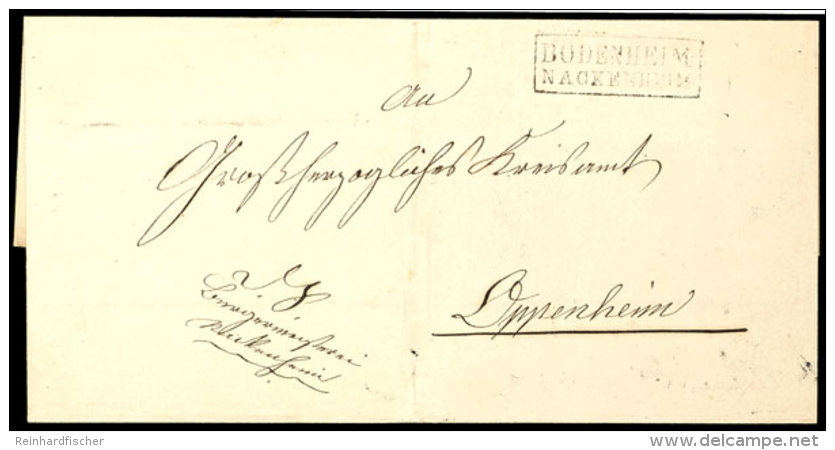 BODENHEIM
NACKENHEIM
An
Großherzogliches Kreisamt
Oppenheim
Bürgermeisterei
Nackenheim
Reinhardfischer
www.delcampe.net